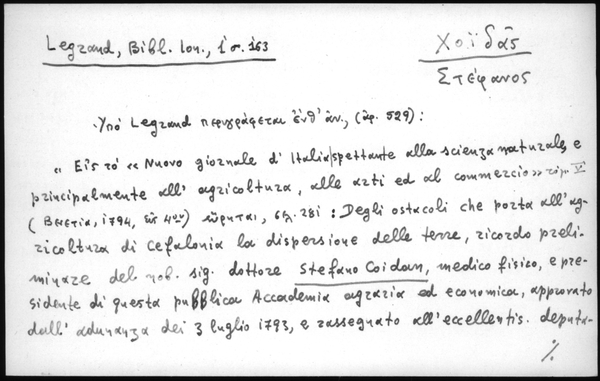 Legrand, Bibl. Ion., I σ. 163
Χοϊδᾶς
Στέφανος
Ὑπό Legrand περιγράφεται ἐνθ' ἀν., (ἀρ. 529):
" Εἰς τό « Nuovo giornale d' Italia spettante alla scienza naturale, e
principalmente all' agricoltura, alle arti ed al commercio » τόμ. V
(Βενετία, 1794, εἰς 4ον) εὕρηται, σελ. 281 : Degli ostacoli che porta all' ag-
ricoltura di Cefalonia la dispersione delle terre, ricordo preli-
minare del nob. sig. dottore Stefano Coidan, medico fisico, e pre-
sidente di questa pubblica Accademia agraria ed economica, approvato
dall' adunanza dei 3 luglio 1793, e rassegnato all' eccellentis. deputa-
%